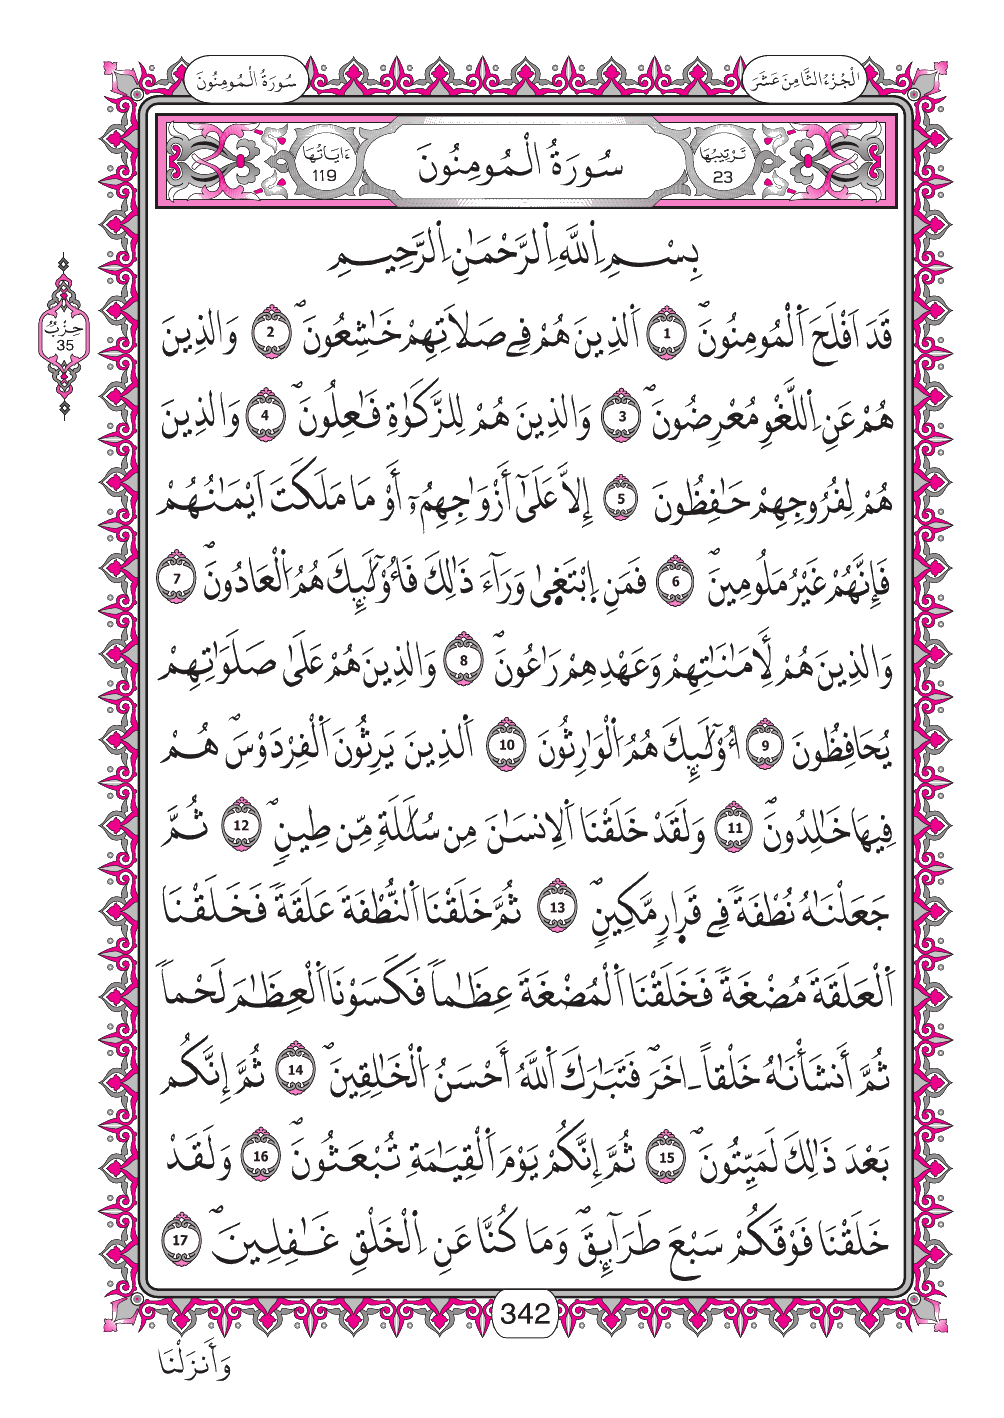 الْجُزْءُ الثَّامِنَ عَشَرَ
سُورَةُ الْمُومِنُونَ
تَرْتِيبُهَا 23
سُورَةُ الْمُومِنُونَ
ءَايَاتُهَا 119
بِسْمِ اِ۬للَّهِ اِ۬لرَّحْمَٰنِ اِ۬لرَّحِيمِ
حِزْبُ 35
قَدَ اَفْلَحَ اَ۬لْمُومِنُونَ 1 اَ۬لذِينَ هُمْ فِے صَلَاتِهِمْ خَٰشِعُونَ 2 وَالذِينَ
هُمْ عَنِ اِ۬للَّغْوِ مُعْرِضُونَ 3 وَالذِينَ هُمْ لِلزَّكَوٰةِ فَٰعِلُونَ 4 وَالذِينَ
هُمْ لِفُرُوجِهِمْ حَٰفِظُونَ 5 إِلَّا عَلَىٰٓ أَزْوَٰجِهِمُۥٓ أَوْ مَا مَلَكَتَ اَيْمَٰنُهُمْ
فَإِنَّهُمْ غَيْرُ مَلُومِينَ 6 فَمَنِ اِ۪بْتَغ۪ىٰ وَرَآءَ ذَٰلِكَ فَأُوْلَٰٓئِكَ هُمُ اُ۬لْعَادُونَ 7
وَالذِينَ هُمْ لِأَمَٰنَٰتِهِمْ وَعَهْدِهِمْ رَٰعُونَ 8 وَالذِينَ هُمْ عَلَىٰ صَلَوَٰتِهِمْ
يُحَافِظُونَ 9 أُوْلَٰٓئِكَ هُمُ اُ۬لْوَٰرِثُونَ 10 اَ۬لذِينَ يَرِثُونَ اَ۬لْفِرْدَوْسَ هُمْ
فِيهَا خَٰلِدُونَ 11 وَلَقَدْ خَلَقْنَا اَ۬لِانسَٰنَ مِن سُلَٰلَةٍ مِّن طِينٍ 12 ثُمَّ
جَعَلْنَٰهُ نُطْفَةً فِے قَر۪ارٍ مَّكِينٍ 13 ثُمَّ خَلَقْنَا اَ۬لنُّطْفَةَ عَلَقَةً فَخَلَقْنَا
اَ۬لْعَلَقَةَ مُضْغَةً فَخَلَقْنَا اَ۬لْمُضْغَةَ عِظَٰماً فَكَسَوْنَا اَ۬لْعِظَٰمَ لَحْماً
ثُمَّ أَنشَأْنَٰهُ خَلْقاً ـ اخَرَ فَتَبَٰرَكَ اَ۬للَّهُ أَحْسَنُ اُ۬لْخَٰلِقِينَ 14 ثُمَّ إِنَّكُم
بَعْدَ ذَٰلِكَ لَمَيِّتُونَ 15 ثُمَّ إِنَّكُمْ يَوْمَ اَ۬لْقِيَٰمَةِ تُبْعَثُونَ 16 وَلَقَدْ
خَلَقْنَا فَوْقَكُمْ سَبْعَ طَرَآئِقَ وَمَا كُنَّا عَنِ اِ۬لْخَلْقِ غَٰفِلِينَ 17
342
وَأَنزَلْنَا